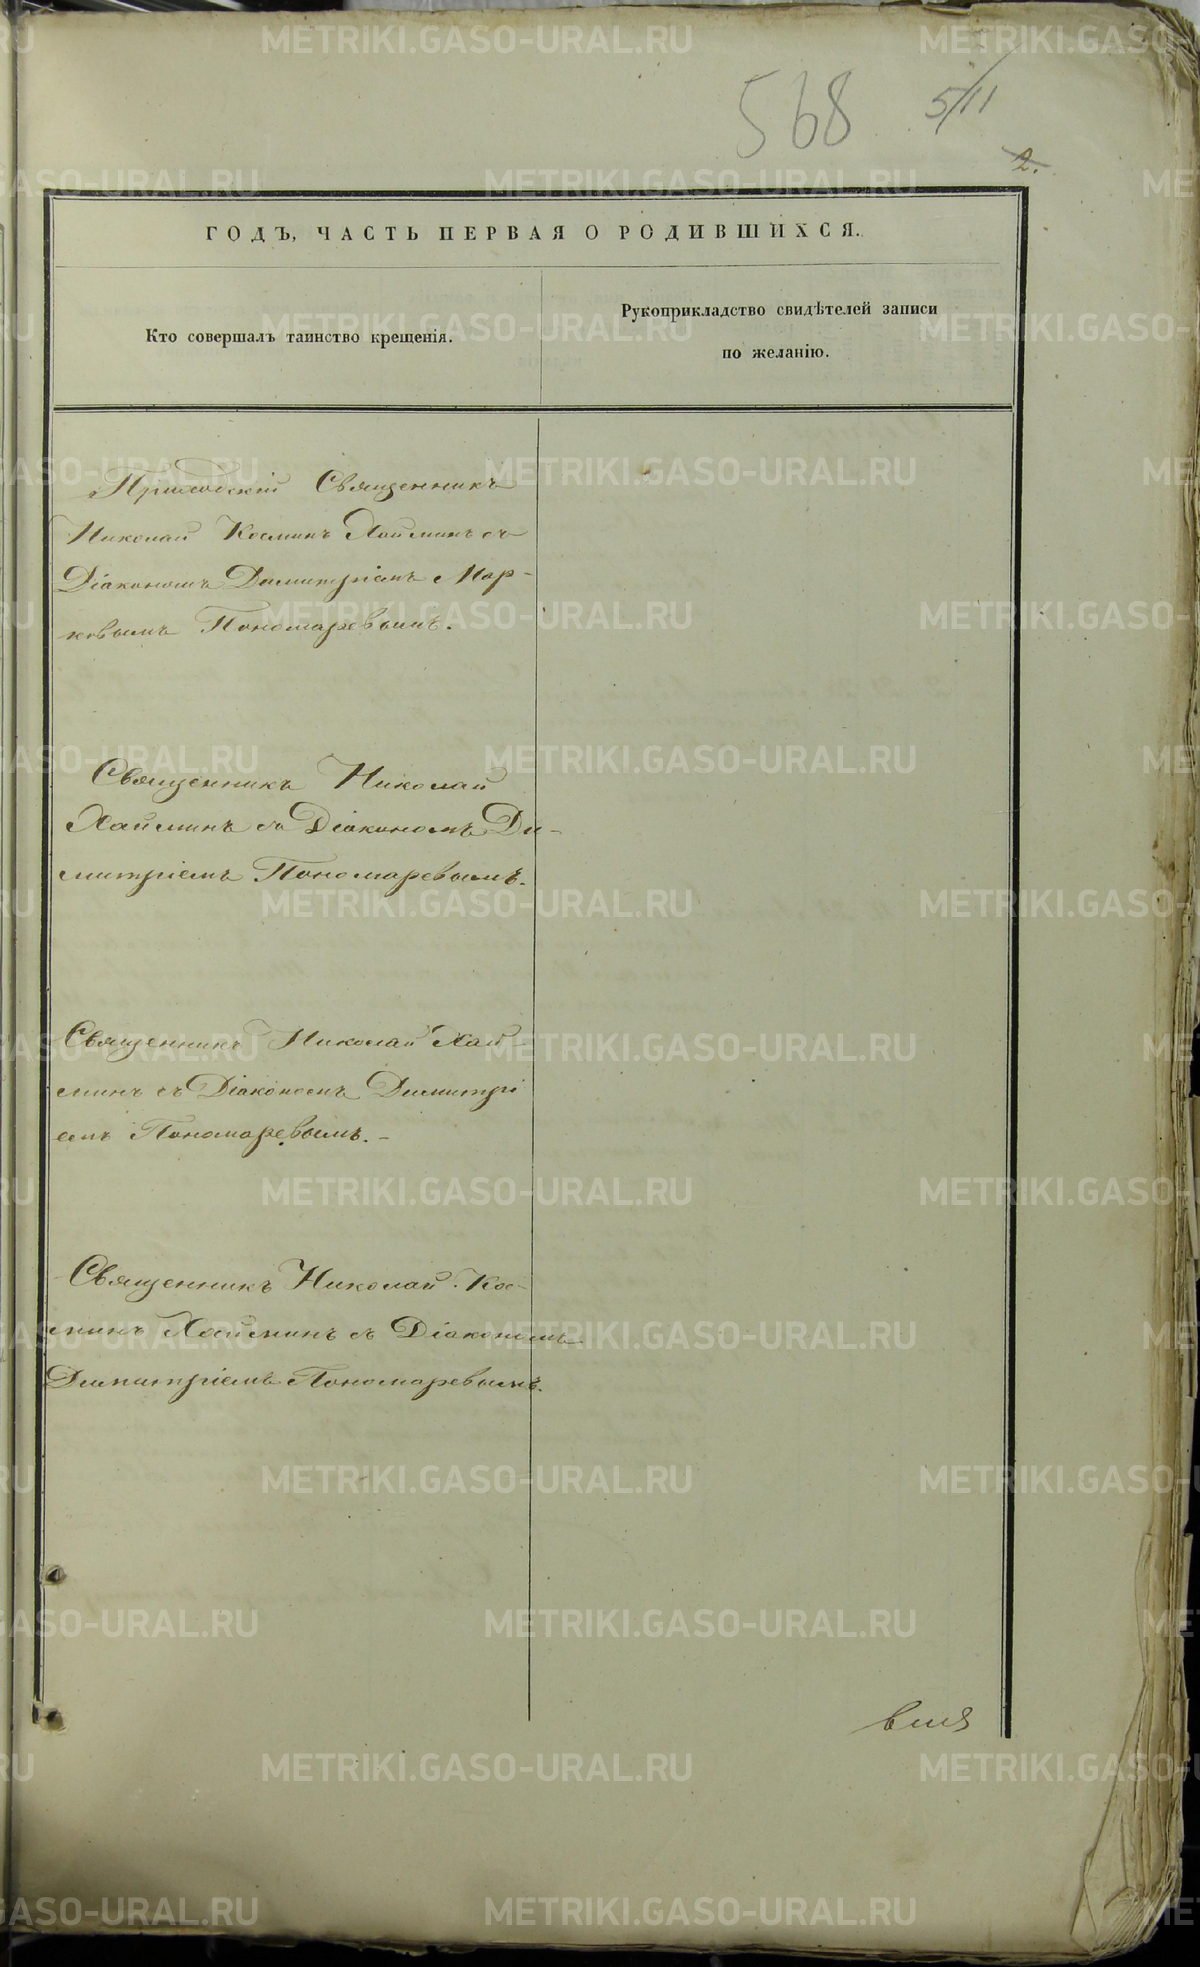 568 5/11
2.
ГОДЪ, ЧАСТЬ ПЕРВАЯ О РОДИВШИХСЯ.
Кто совершалъ таинство крещенія.
Рукоприкладство свидѣтелей записи
по желанію.
Приходскій Священникъ
Николай Косминъ Хайминъ съ
Діакономъ Димитріемъ Мар-
ковымъ Пономаревымъ.
Священникъ Николай
Хайминъ съ Діакономъ Ди-
митріемъ Пономаревымъ.
Священникъ Николай Хай-
минъ съ Діакономъ Димитрі
емъ Пономаревымъ. -
Священникъ Николай Кос-
минъ Хайминъ съ Діакономъ
Димитріемъ Пономаревымъ.
METRIKI.GASO-URAL.RU